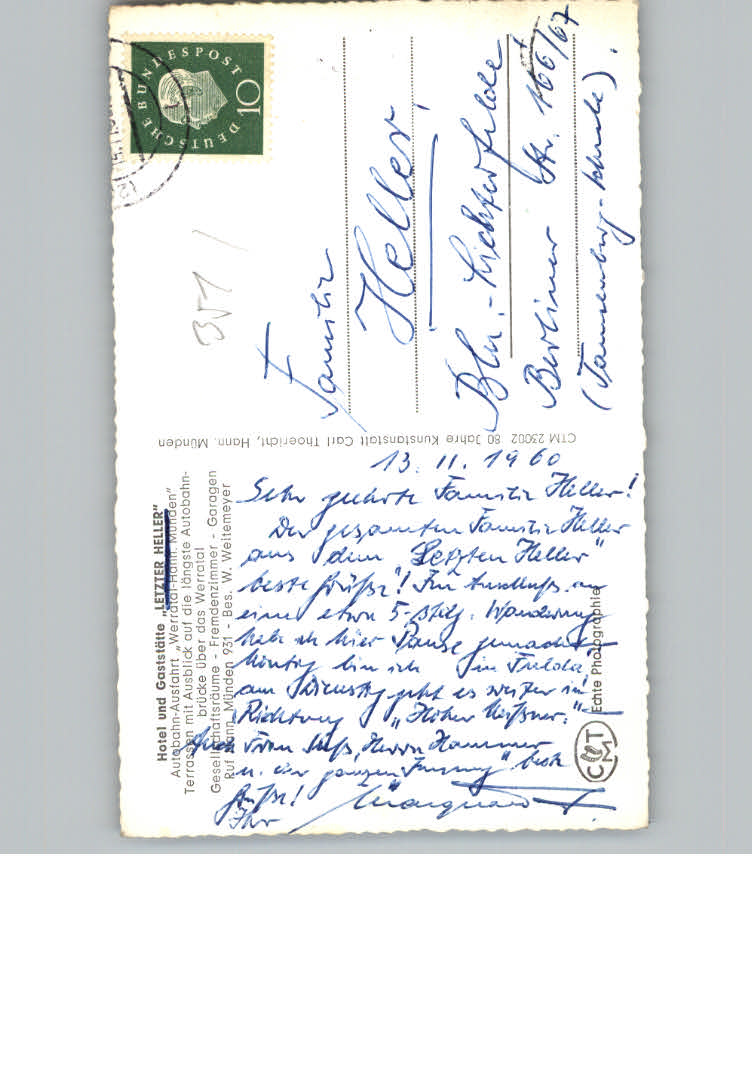 Hotel und Gaststätte „LETZTER HELLER"
Autobahn-Ausfahrt „Werratal-Hann. Münden"
Terrassen mit Ausblick auf die längste Autobahn-
brücke über das Werratal
Gesellschaftsräume - Fremdenzimmer - Garagen
Ruf Hann. Münden 931 - Bes. W. Weltemeyer
13. 11. 1960
Sehr geehrte Familie Heller!
Der gesamten Familie Heller
aus dem „Letzten Heller"
beste Grüße! Im Anschluß an
eine etwa 5-stdg. Wanderung
habe ich hier Pause gemacht.
Montag bin ich in Fulda,
am Dienstag geht es weiter in
Richtung „Hoher Meißner."
Auch Frau Huß, Herrn Hammer
u. der ganzen beste
Grüße!
Ihr Marquardt
CTM
Echte Photographie
CTM 23002 80 Jahre Kunstanstalt Carl Thoericht, Hann. Münden
DEUTSCHE BUNDESPOST
10
351
Familie
Heller!
Bln.-Lichterfelde
Berliner Str. 166/67
(Tannenberg-Schule).